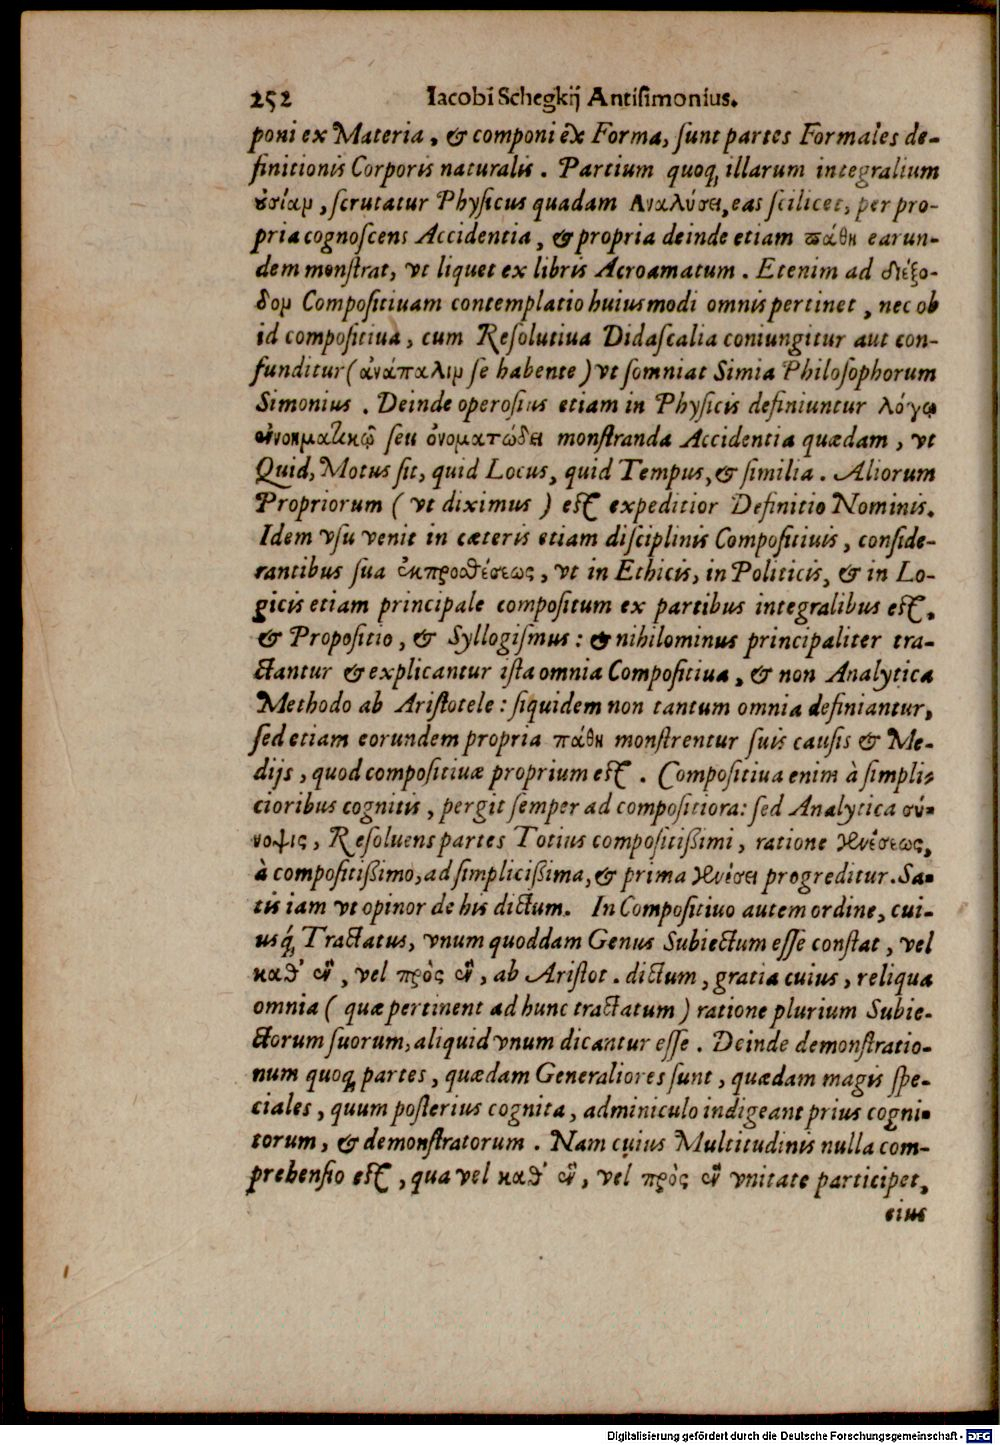 252 Iacobi Schegkij Antisimonius.
poni ex Materia, & componi ex Forma, ſunt partes Formales de-
finitionis Corporis naturalis. Partium quoq; illarum integralium
ȣσίαμ, ſcrutatur Phyſicus quadam Αναλύσει, eas ſcilicet, per pro-
pria cognoſcens Accidentia, & propria deinde etiam πάθη earun-
dem monſtrat, vt liquet ex libris Acroamatum. Etenim ad διέξο-
δομ Compoſitiuam contemplatio huiusmodi omnis pertinet, nec ob
id compoſitiua, cum Reſolutiua Didaſcalia coniungitur aut con-
funditur (ἀνάπαλιμ ſe habente) vt ſomniat Simia Philoſophorum
Simonius. Deinde operoſius etiam in Phyſicis definiuntur λόγῳ
ſeu ὀνοματώδει monſtranda Accidentia quædam, vt
Quid, Motus ſit, quid Locus, quid Tempus, & ſimilia. Aliorum
Propriorum (vt diximus) eſt expeditior Definitio Nominis.
Idem vſu venit in cæteris etiam diſciplinis Compoſitiuis, conſide-
rantibus ſua ἐκπροθέσεως, vt in Ethicis, in Politicis, & in Lo-
gicis etiam principale compoſitum ex partibus integralibus eſt,
& Propoſitio, & Syllogiſmus: & nihilominus principaliter tra-
ctantur & explicantur iſta omnia Compoſitiua, & non Analytica
Methodo ab Ariſtotele: ſiquidem non tantum omnia definiantur,
ſed etiam eorundem propria πάθη monſtrentur ſuis cauſis & Me-
dijs, quod compoſitiuæ proprium eſt. Compoſitiua enim à ſimpli-
cioribus cognitis, pergit ſemper ad compoſitiora: ſed Analytica σύ-
νοψις, Reſoluens partes Totius compoſitißimi, ratione ϗνέσεως,
à compoſitißimo, ad ſimplicißima, & prima ϗνέσει progreditur. Sa-
tis iam vt opinor de his dictum. In Compoſitiuo autem ordine, cui-
usq́; Tractatus, vnum quoddam Genus Subiectum eſſe conſtat, vel
καθ' ἓν, vel πρὸς ἓν, ab Ariſtot. dictum, gratia cuius, reliqua
omnia (quæ pertinent ad hunc tractatum) ratione plurium Subie-
ctorum ſuorum, aliquid vnum dicantur eſſe. Deinde demonſtratio-
num quoq; partes, quædam Generaliores ſunt, quædam magis ſpe-
ciales, quum poſterius cognita, adminiculo indigeant prius cogni-
torum, & demonſtratorum. Nam cuius Multitudinis nulla com-
prehenſio eſt, qua vel καθ' ἓν, vel πρὸς ἓν vnitate participet,
eius
Digitalisierung gefördert durch die Deutsche Forschungsgemeinschaft - DFG